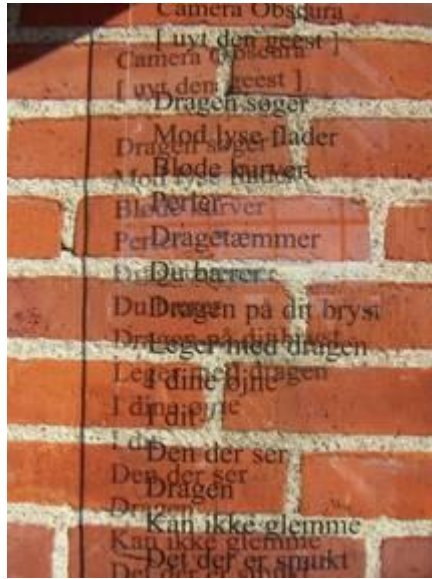 Camera Obscura
[ uyt den geest ]
Dragen søger
Mod lyse flader
Bløde kurver
Perler
Dragetæmmer
Du bærer
Dragen på dit bryst
Leger med dragen
I dine øjne
I dit
Den der ser
Dragen
Kan ikke glemme
Det der er smukt